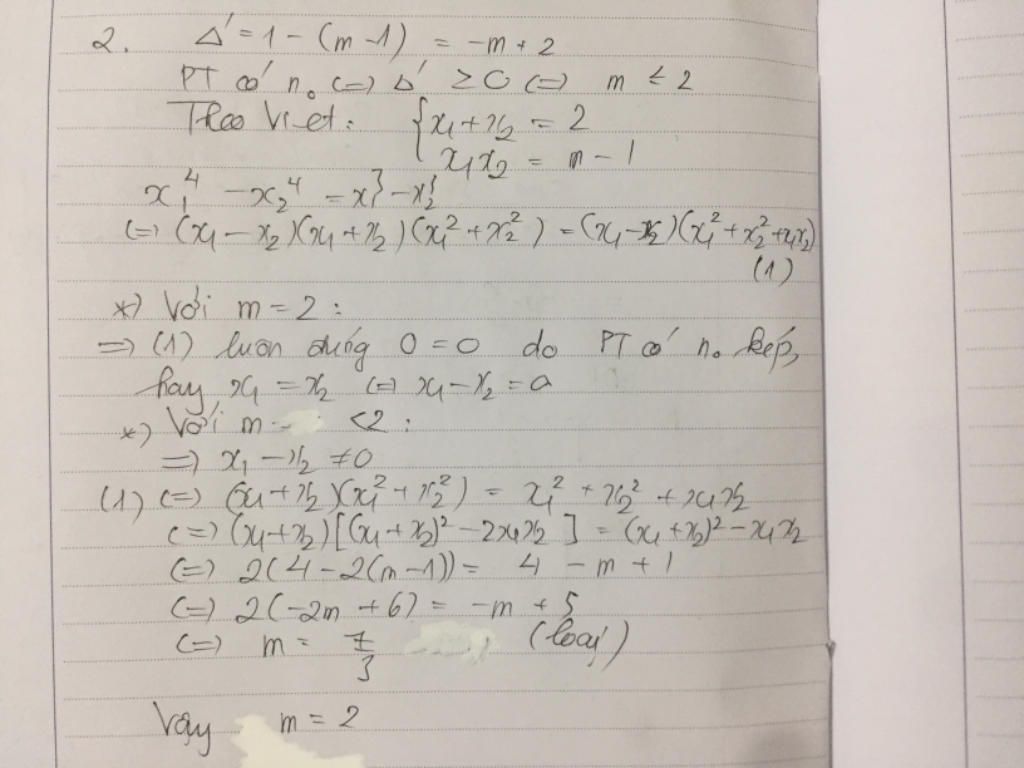 2. Δ' = 1 - (m - 1) = -m + 2
PT có n₀ (=) Δ' ≥ 0 (=) m ≤ 2
Theo Viet: { x₁ + x₂ = 2
x₁x₂ = m - 1
x₁⁴ - x₂⁴ = x₁³ - x₂³
(=) (x₁ - x₂)(x₁ + x₂)(x₁² + x₂²) = (x₁ - x₂)(x₁² + x₂² + x₁x₂)
(1)
*) Với m = 2 :
=) (1) luôn đúng 0 = 0 do PT có n₀ kép,
hay x₁ = x₂ (=) x₁ - x₂ = 0
*) Với m < 2 :
=) x₁ - x₂ ≠ 0
(1) (=) (x₁ + x₂)(x₁² + x₂²) = x₁² + x₂² + x₁x₂
(=) (x₁ + x₂)[(x₁ + x₂)² - 2x₁x₂] = (x₁ + x₂)² - x₁x₂
(=) 2(4 - 2(m - 1)) = 4 - m + 1
(=) 2(-2m + 6) = -m + 5
(=) m = 7/3 (loại)
Vậy m = 2